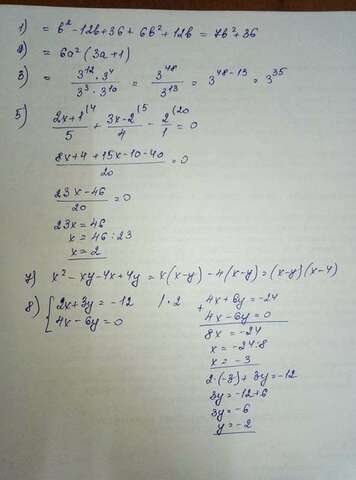 1) = b² - 12b + 36 + 6b² + 12b = 7b² + 36
4) = 6a² (3a + 1)
3) = 3¹² · 3⁴ / 3³ · 3¹⁰ = 3⁴⁸ / 3¹³ = 3⁴⁸⁻¹³ = 3³⁵
5)
2x+1⁽⁴ / 5 + 3x-2⁽⁵ / 4 - 2⁽²⁰ / 1 = 0
8x+4+15x-10-40 / 20 = 0
23x-46 / 20 = 0
23x = 46
x = 46 : 23
x = 2
7) x² - xy - 4x + 4y = x(x-y) - 4(x-y) = (x-y)(x-4)
8) { 2x + 3y = -12 | · 2
4x - 6y = 0
+ 4x + 6y = -24
4x - 6y = 0
8x = -24
x = -24:8
x = -3
2·(-3) + 3y = -12
3y = -12+6
3y = -6
y = -2